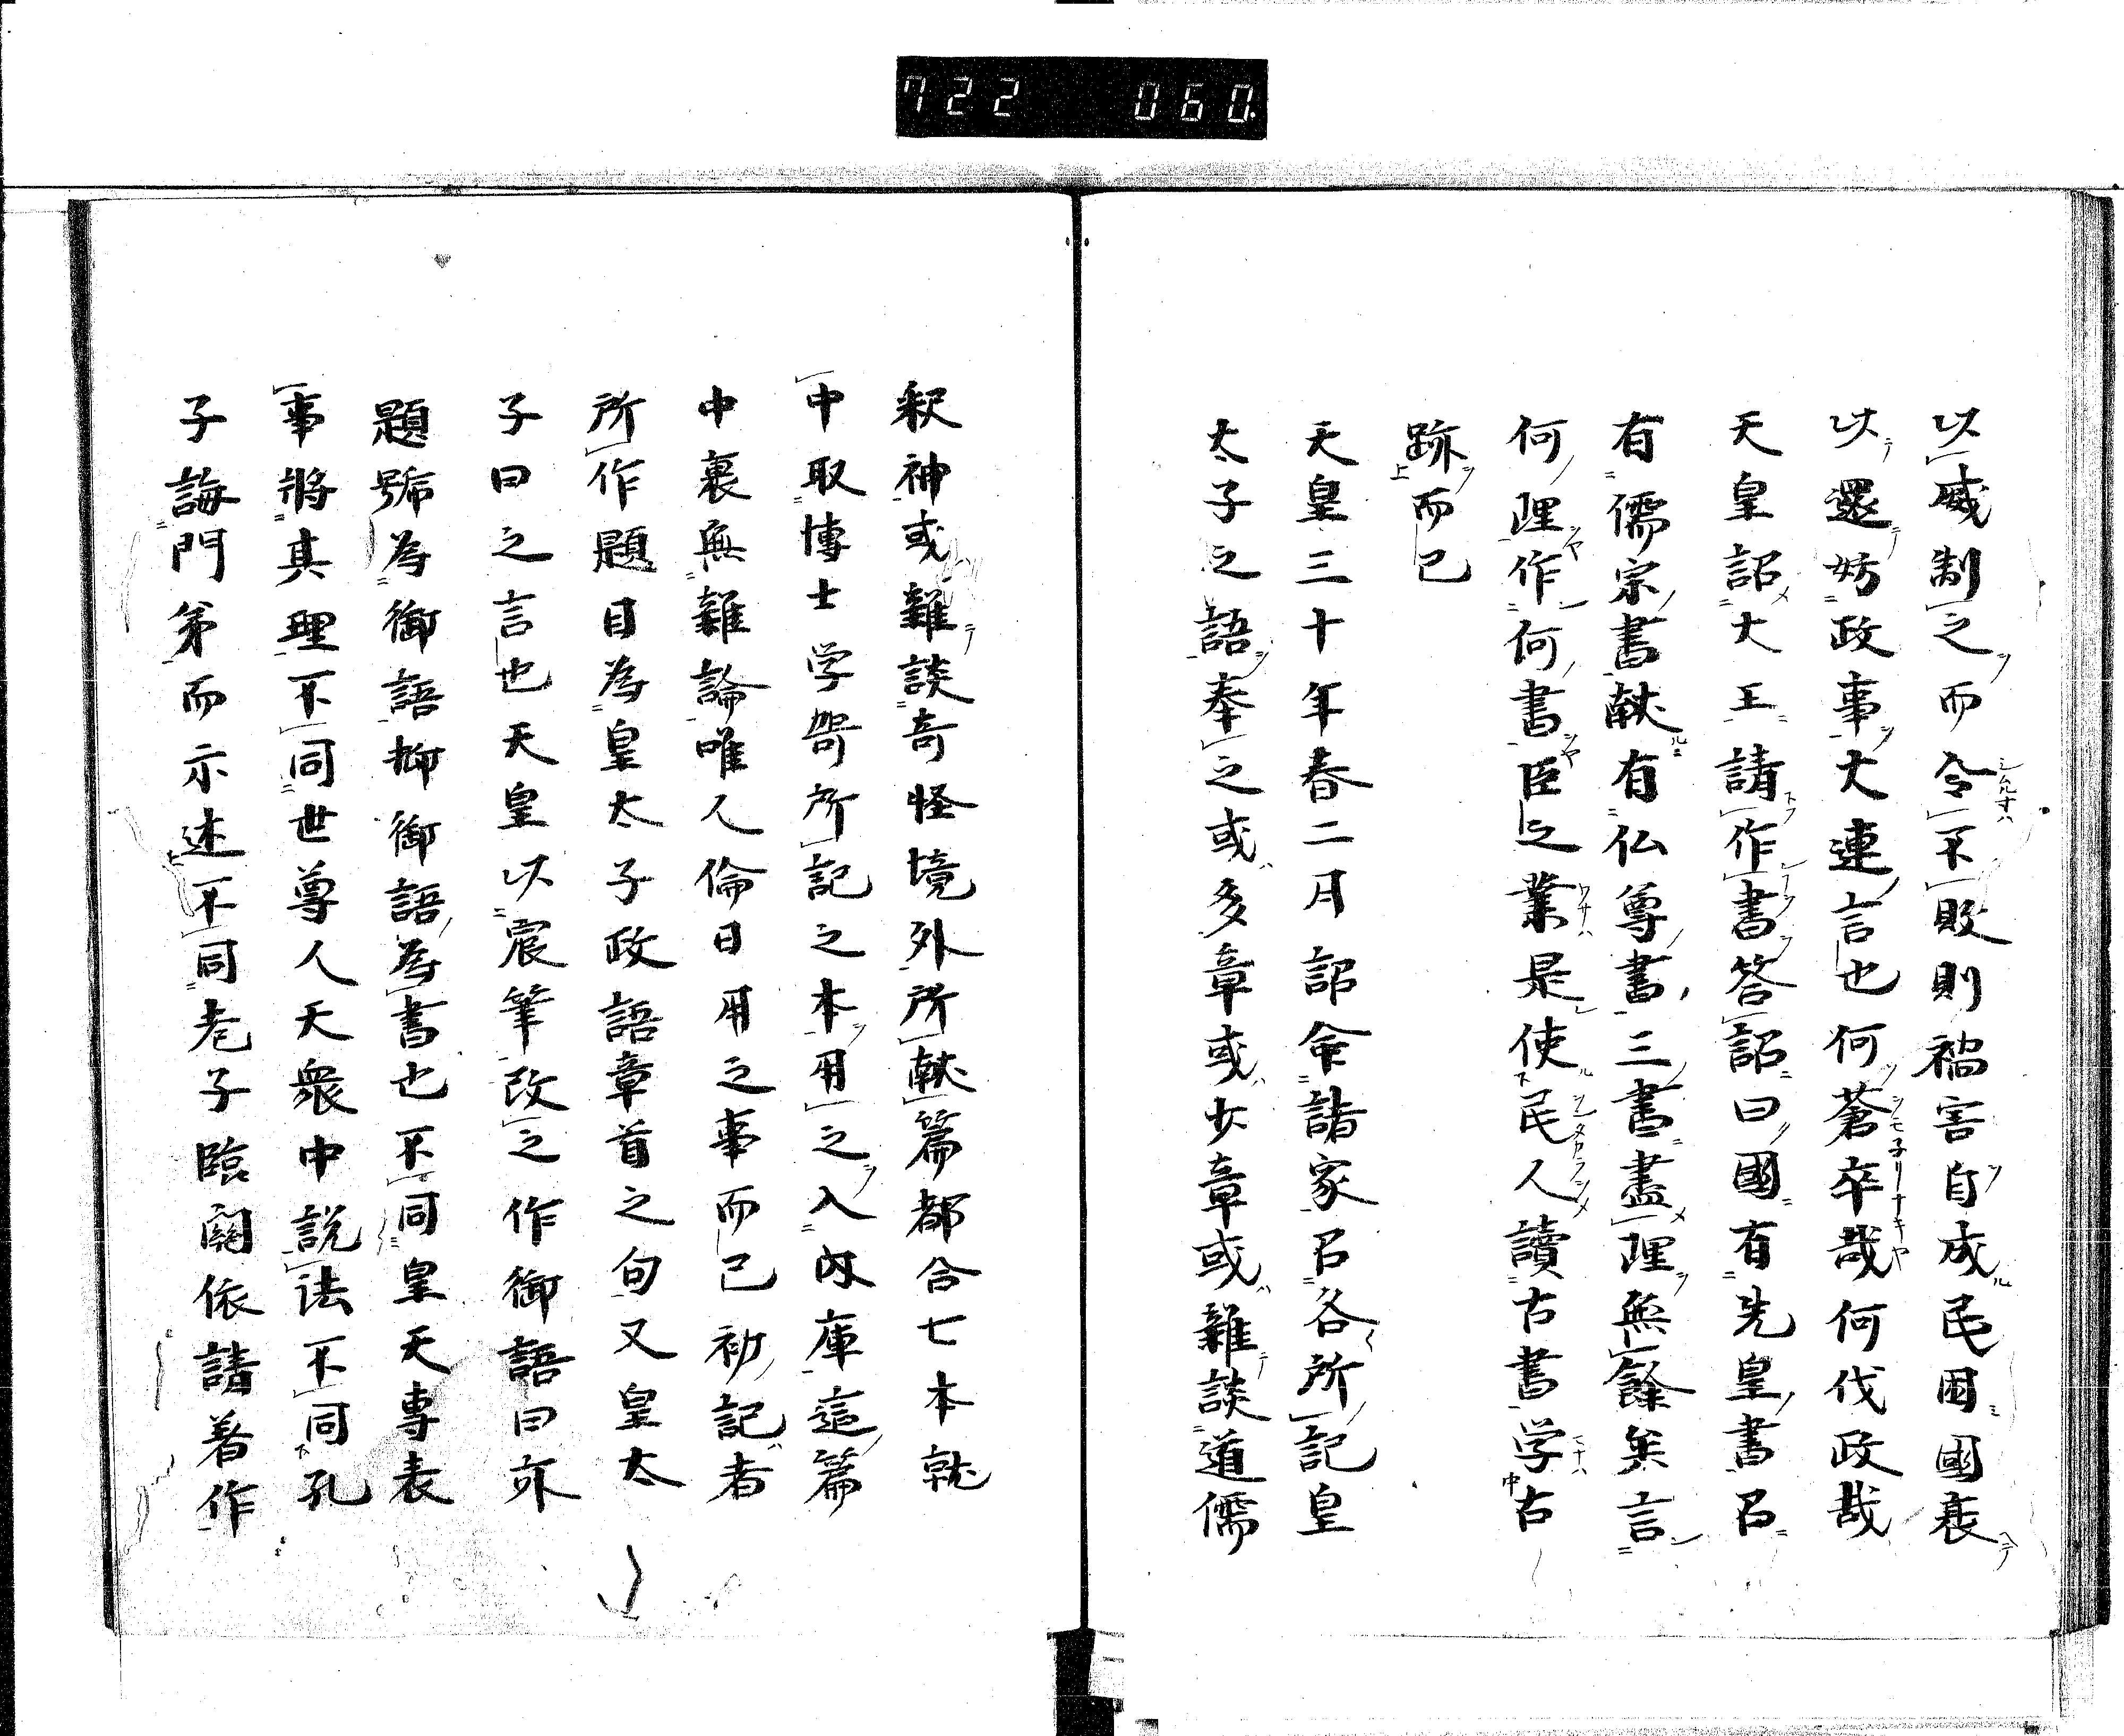 722 060.
以威制之而令不敗則禍害自成民困國衰
以還妨政事大連言也何蒼卒哉何伐政哉
天皇詔大王請作書答詔曰國有先皇書召
有儒宗書献有仏尊書三書盡理無餘矣言
何理作何書臣之業是使民人讀古書学古
跡而已
天皇三十年春二月詔命諸家召各所記皇
太子之語奉之或多章或少章或雜談道儒
釈神或雜談奇怪境外所献篇都合七本就
中取博士学哿所記之本用之入内庫這篇
中裏無雜論唯人倫日用之事而已初記者
所作題目為皇太子政語章首之句又皇太
子曰之言也天皇以宸筆改之作御語曰亦
題號為御語抑御語為書也不同皇天専表
事將其理不同世尊人天衆中説法不同孔
子誨門弟而示述不同老子臨関依請著作